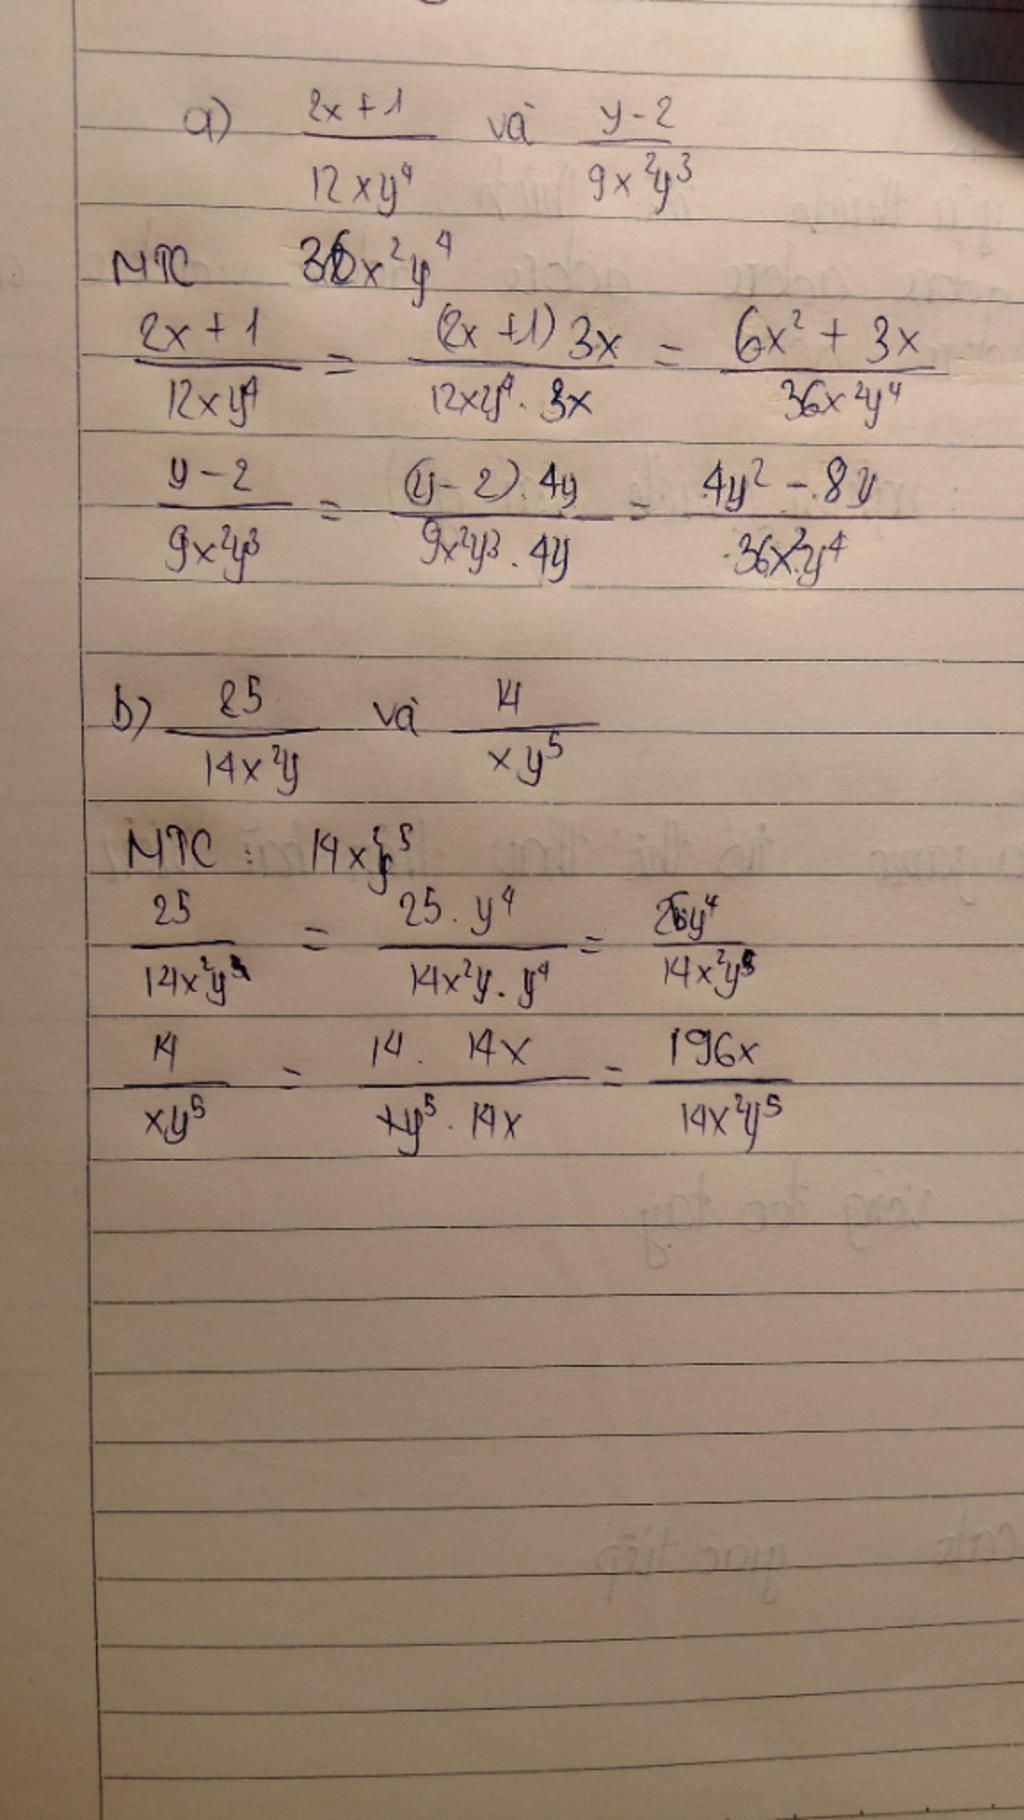 a) (2x + 1)/(12xy⁴) và (y - 2)/(9x²y³)
MTC 36x²y⁴
(2x + 1)/(12xy⁴) = ((2x + 1) 3x)/(12xy⁴ . 3x) = (6x² + 3x)/(36x²y⁴)
(y - 2)/(9x²y³) = ((y - 2) . 4y)/(9x²y³ . 4y) = (4y² - 8y)/(36x²y⁴)
b) 25/(14x²y) và 14/(xy⁵)
MTC : 14x²y⁵
25/(14x²y) = (25 . y⁴)/(14x²y . y⁴) = 25y⁴/(14x²y⁵)
14/(xy⁵) = (14 . 14x)/(xy⁵ . 14x) = 196x/(14x²y⁵)